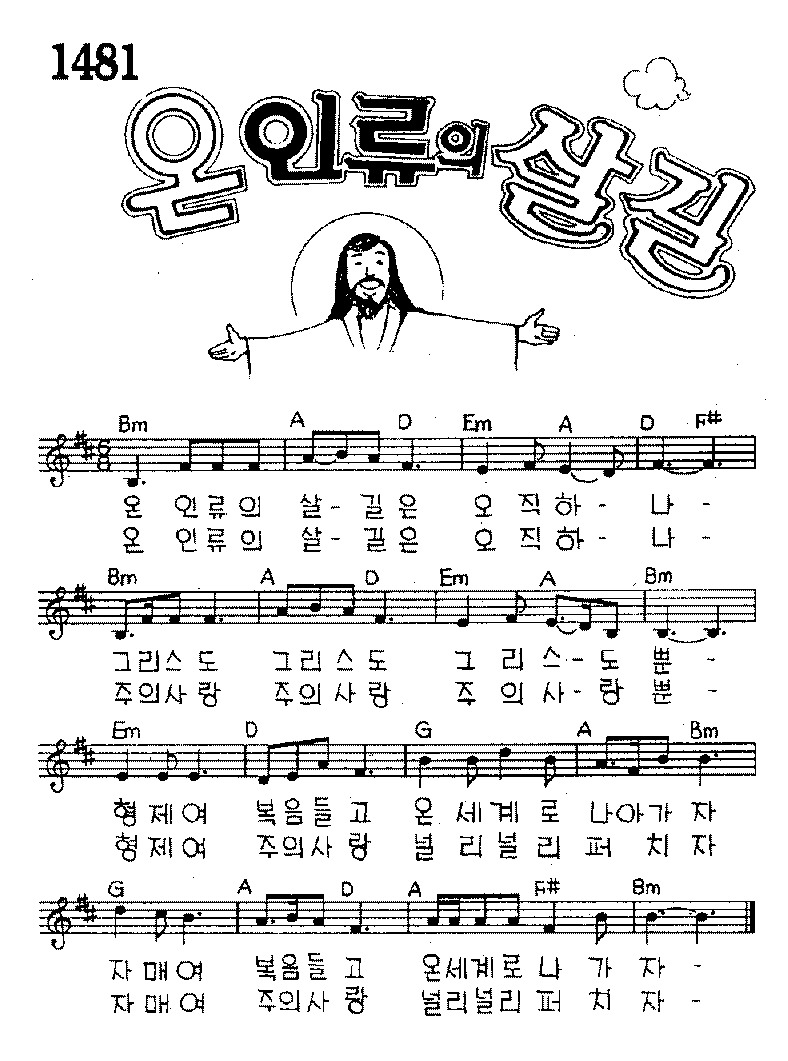 1481
온 인류의 살길
Bm A D Em A D F#
온 인류의 살- 길은 오 직하 - 나 -
온 인류의 살- 길은 오 직하 - 나 -
Bm A D Em A Bm
그리스도 그리스도 그 리 스- 도 뿐 -
주의사랑 주의사랑 주 의 사- 랑 뿐 -
Em D G A Bm
형 제 여 복음들고 온 세계 로 나아가 자
형 제 여 주의사 랑 널 리널 리 퍼 치 자
G A D A F# Bm
자 매 여 복음들 고 온세계로 나 가 자 -
자 매 여 주의사 랑 널리널리 퍼 치 자 -